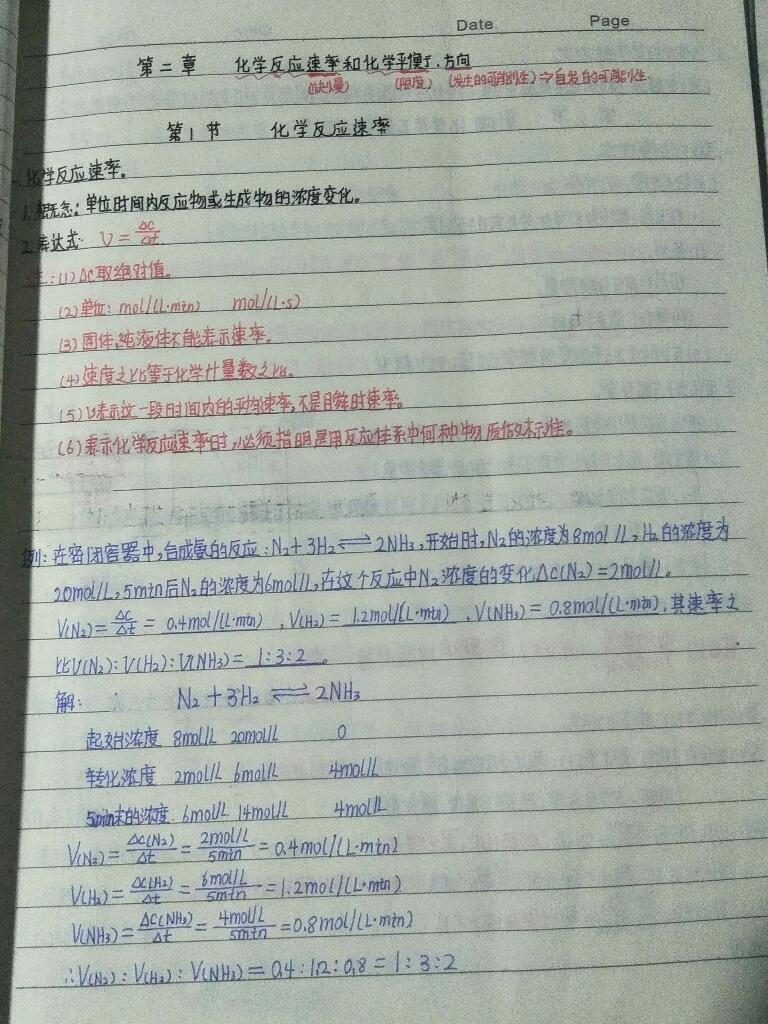 Date Page
第二章 化学反应速率和化学平衡、方向
(快慢) (限度) (发生的可能性)⇒自发的可能性.
第1节 化学反应速率
一.化学反应速率。
1.概念:单位时间内反应物或生成物的浓度变化。
2.表达式: V=Δc/Δt
注:(1)ΔC取绝对值。
(2)单位:mol/(L·min) mol/(L·s)
(3)固体、纯液体不能表示速率。
(4)速度之比等于化学计量数之比。
(5)v表示这一段时间内的平均速率,不是瞬时速率。
(6)表示化学反应速率时,必须指明是用反应体系中何种物质做标准。
例:在密闭容器中,合成氨的反应:N₂+3H₂⇌2NH₃,开始时,N₂的浓度为8mol/L,H₂的浓度为
20mol/L,5min后N₂的浓度为6mol/L,在这个反应中N₂浓度的变化Δc(N₂)=2mol/L。
V(N₂)=Δc/Δt=0.4mol/(L·min),V(H₂)=1.2mol/(L·min),V(NH₃)=0.8mol/(L·min),其速率之
比V(N₂):V(H₂):V(NH₃)=1:3:2。
解: N₂+3H₂⇌2NH₃
起始浓度 8mol/L 20mol/L 0
转化浓度 2mol/L 6mol/L 4mol/L
5min末的浓度 6mol/L 14mol/L 4mol/L
V(N₂)=Δc(N₂)/Δt=2mol/L/5min=0.4mol/(L·min)
V(H₂)=Δc(H₂)/Δt=6mol/L/5min=1.2mol/(L·min)
V(NH₃)=Δc(NH₃)/Δt=4mol/L/5min=0.8mol/(L·min)
∴V(N₂):V(H₂):V(NH₃)=0.4:1.2:0.8=1:3:2